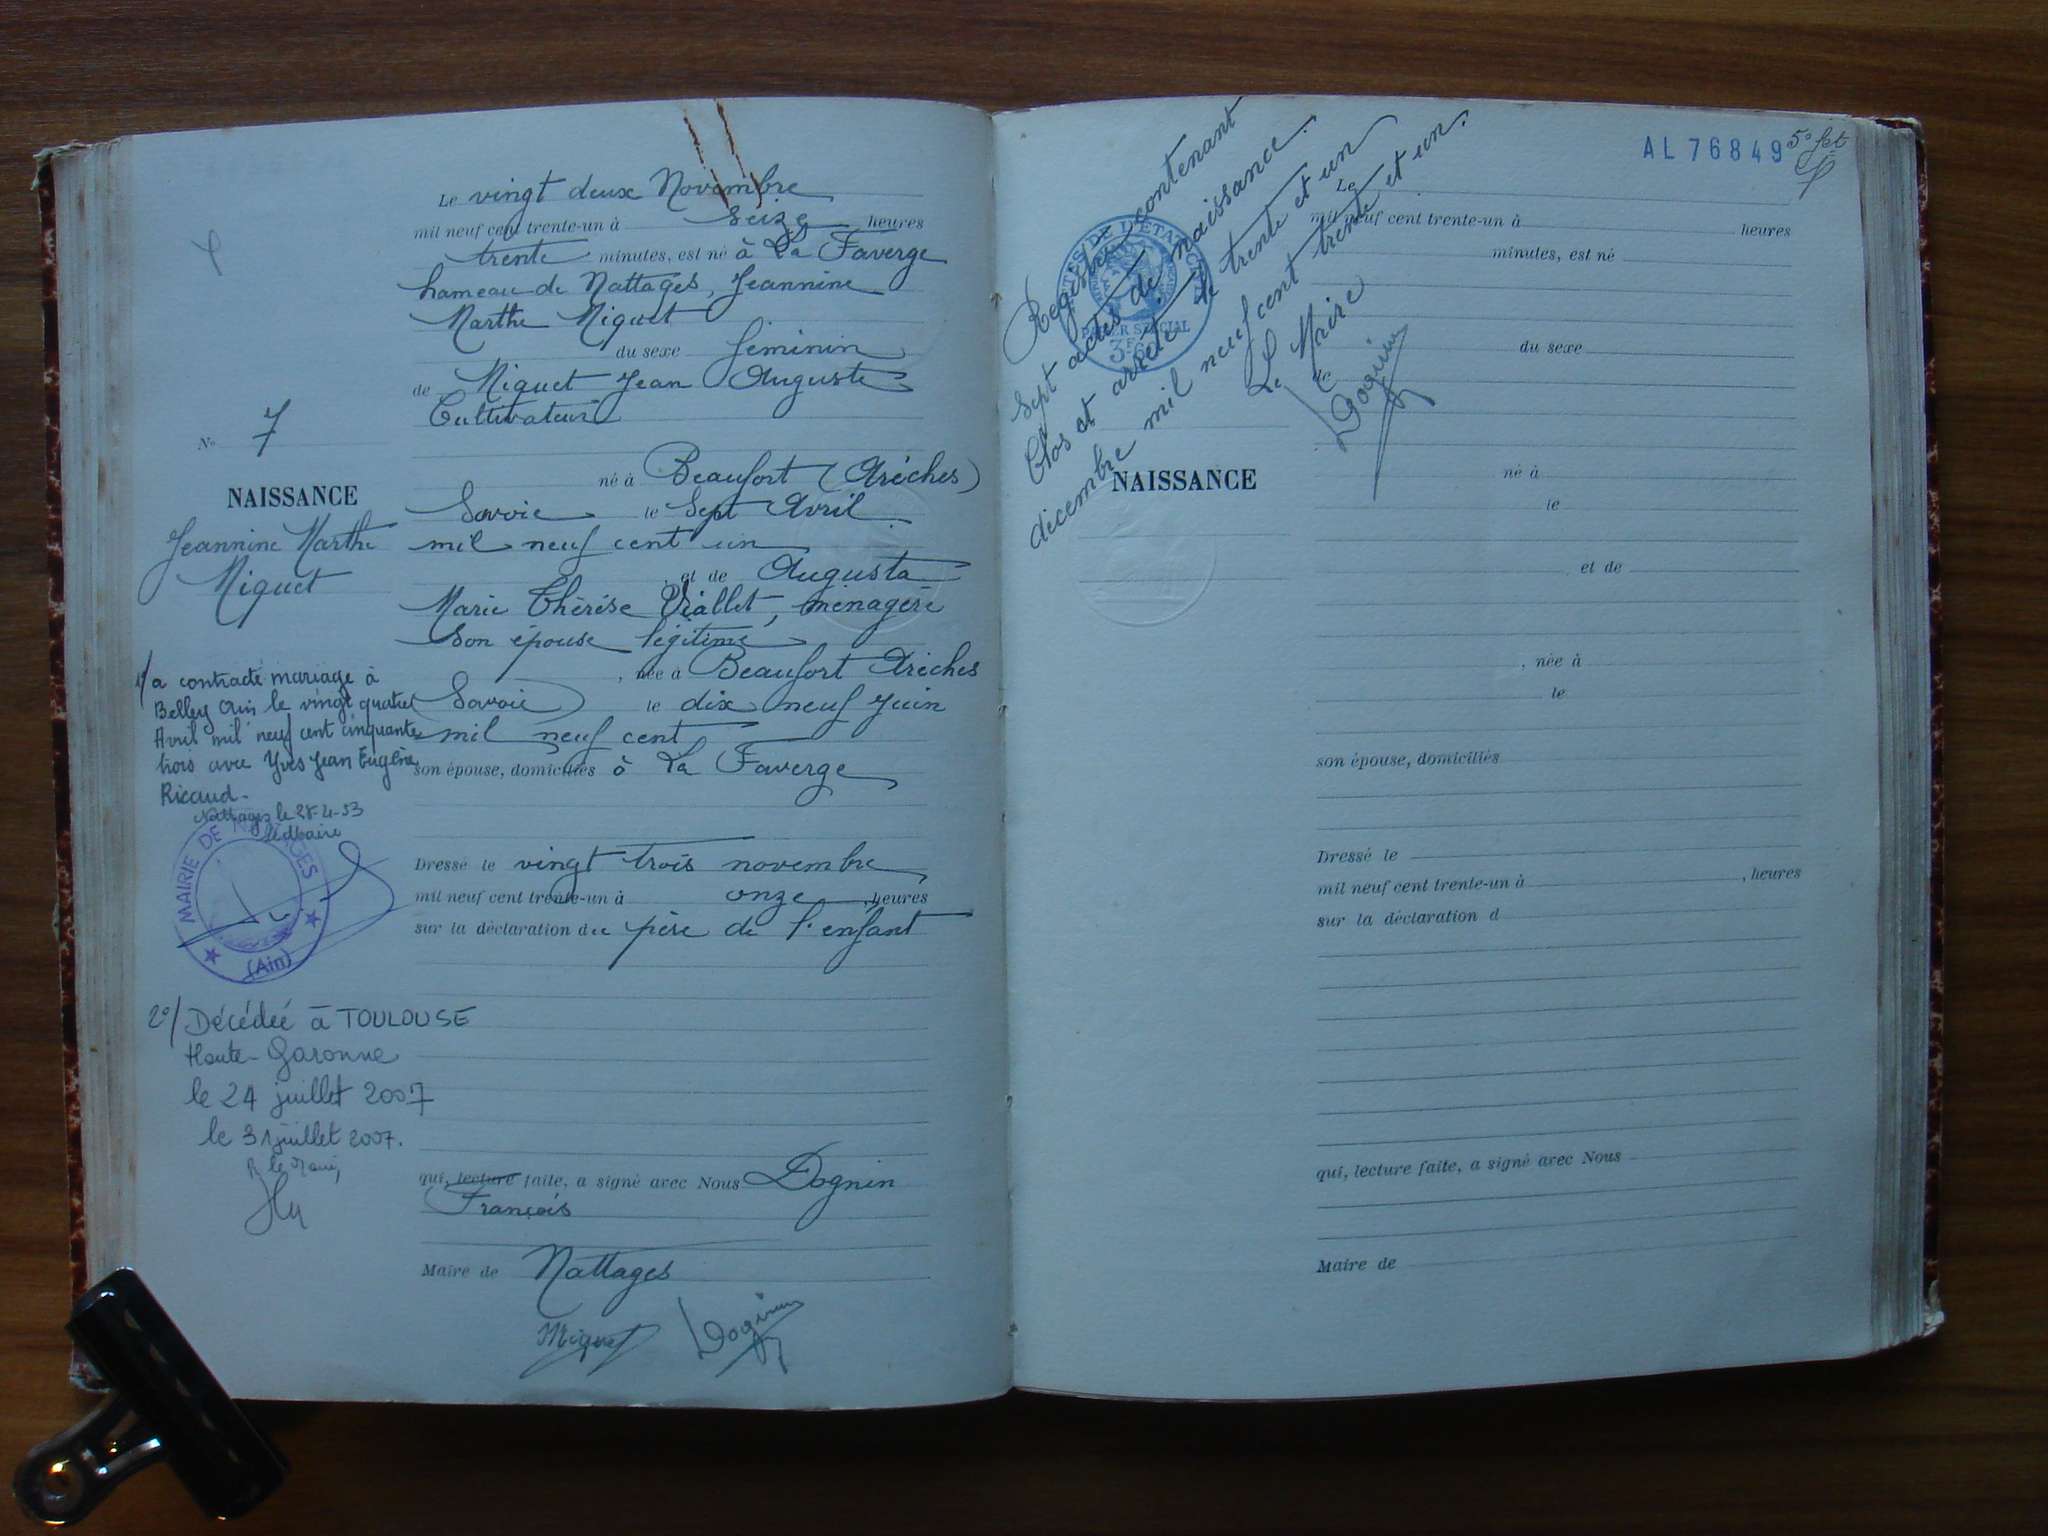 Le vingt deux Novembre
mil neuf cent trente-un à seize heures
trente minutes, est né à La Faverge
hameau de Nattages, Jeannine
Marthe Miguet
du sexe féminin
de Miguet Jean Auguste
Cultivateur
né à Beaufort (Arêches)
Savoie le Sept Avril
mil neuf cent un
et de Augusta
Marie Thérèse Viallet, ménagère
son épouse légitime
, née à Beaufort Arêches
Savoie) le dix neuf Juin
mil neuf cent
son épouse, domiciliés à La Faverge
Dressé le vingt trois novembre
mil neuf cent trente-un à onze heures
sur la déclaration du père de l'enfant
qui, lecture faite, a signé avec Nous Dognin
François
Maire de Nattages
Miguet Dognin
No 7
NAISSANCE
Jeannine Marthe
Miguet
1°/ a contracté mariage à
Belley Ain le vingt quatre
Avril mil neuf cent cinquante
trois avec Yves Jean Eugène
Ricaud.
Nattages le 28-4-53
MAIRIE DE NATTAGES
(Ain)
2°/ Décédée à TOULOUSE
Haute-Garonne
le 24 juillet 2007
le 31 juillet 2007.
AL 76849
5e fet
Registre contenant
sept actes de naissance.
Clos et arrêté le trente et un
décembre mil neuf cent trente et un.
Le Maire
Dognin
PAPIER SPECIAL
3F6
NAISSANCE
Le
mil neuf cent trente-un à heures
minutes, est né
du sexe
de
né à
le
et de
, née à
le
son épouse, domiciliés
Dressé le
mil neuf cent trente-un à , heures
sur la déclaration d
qui, lecture faite, a signé avec Nous
Maire de